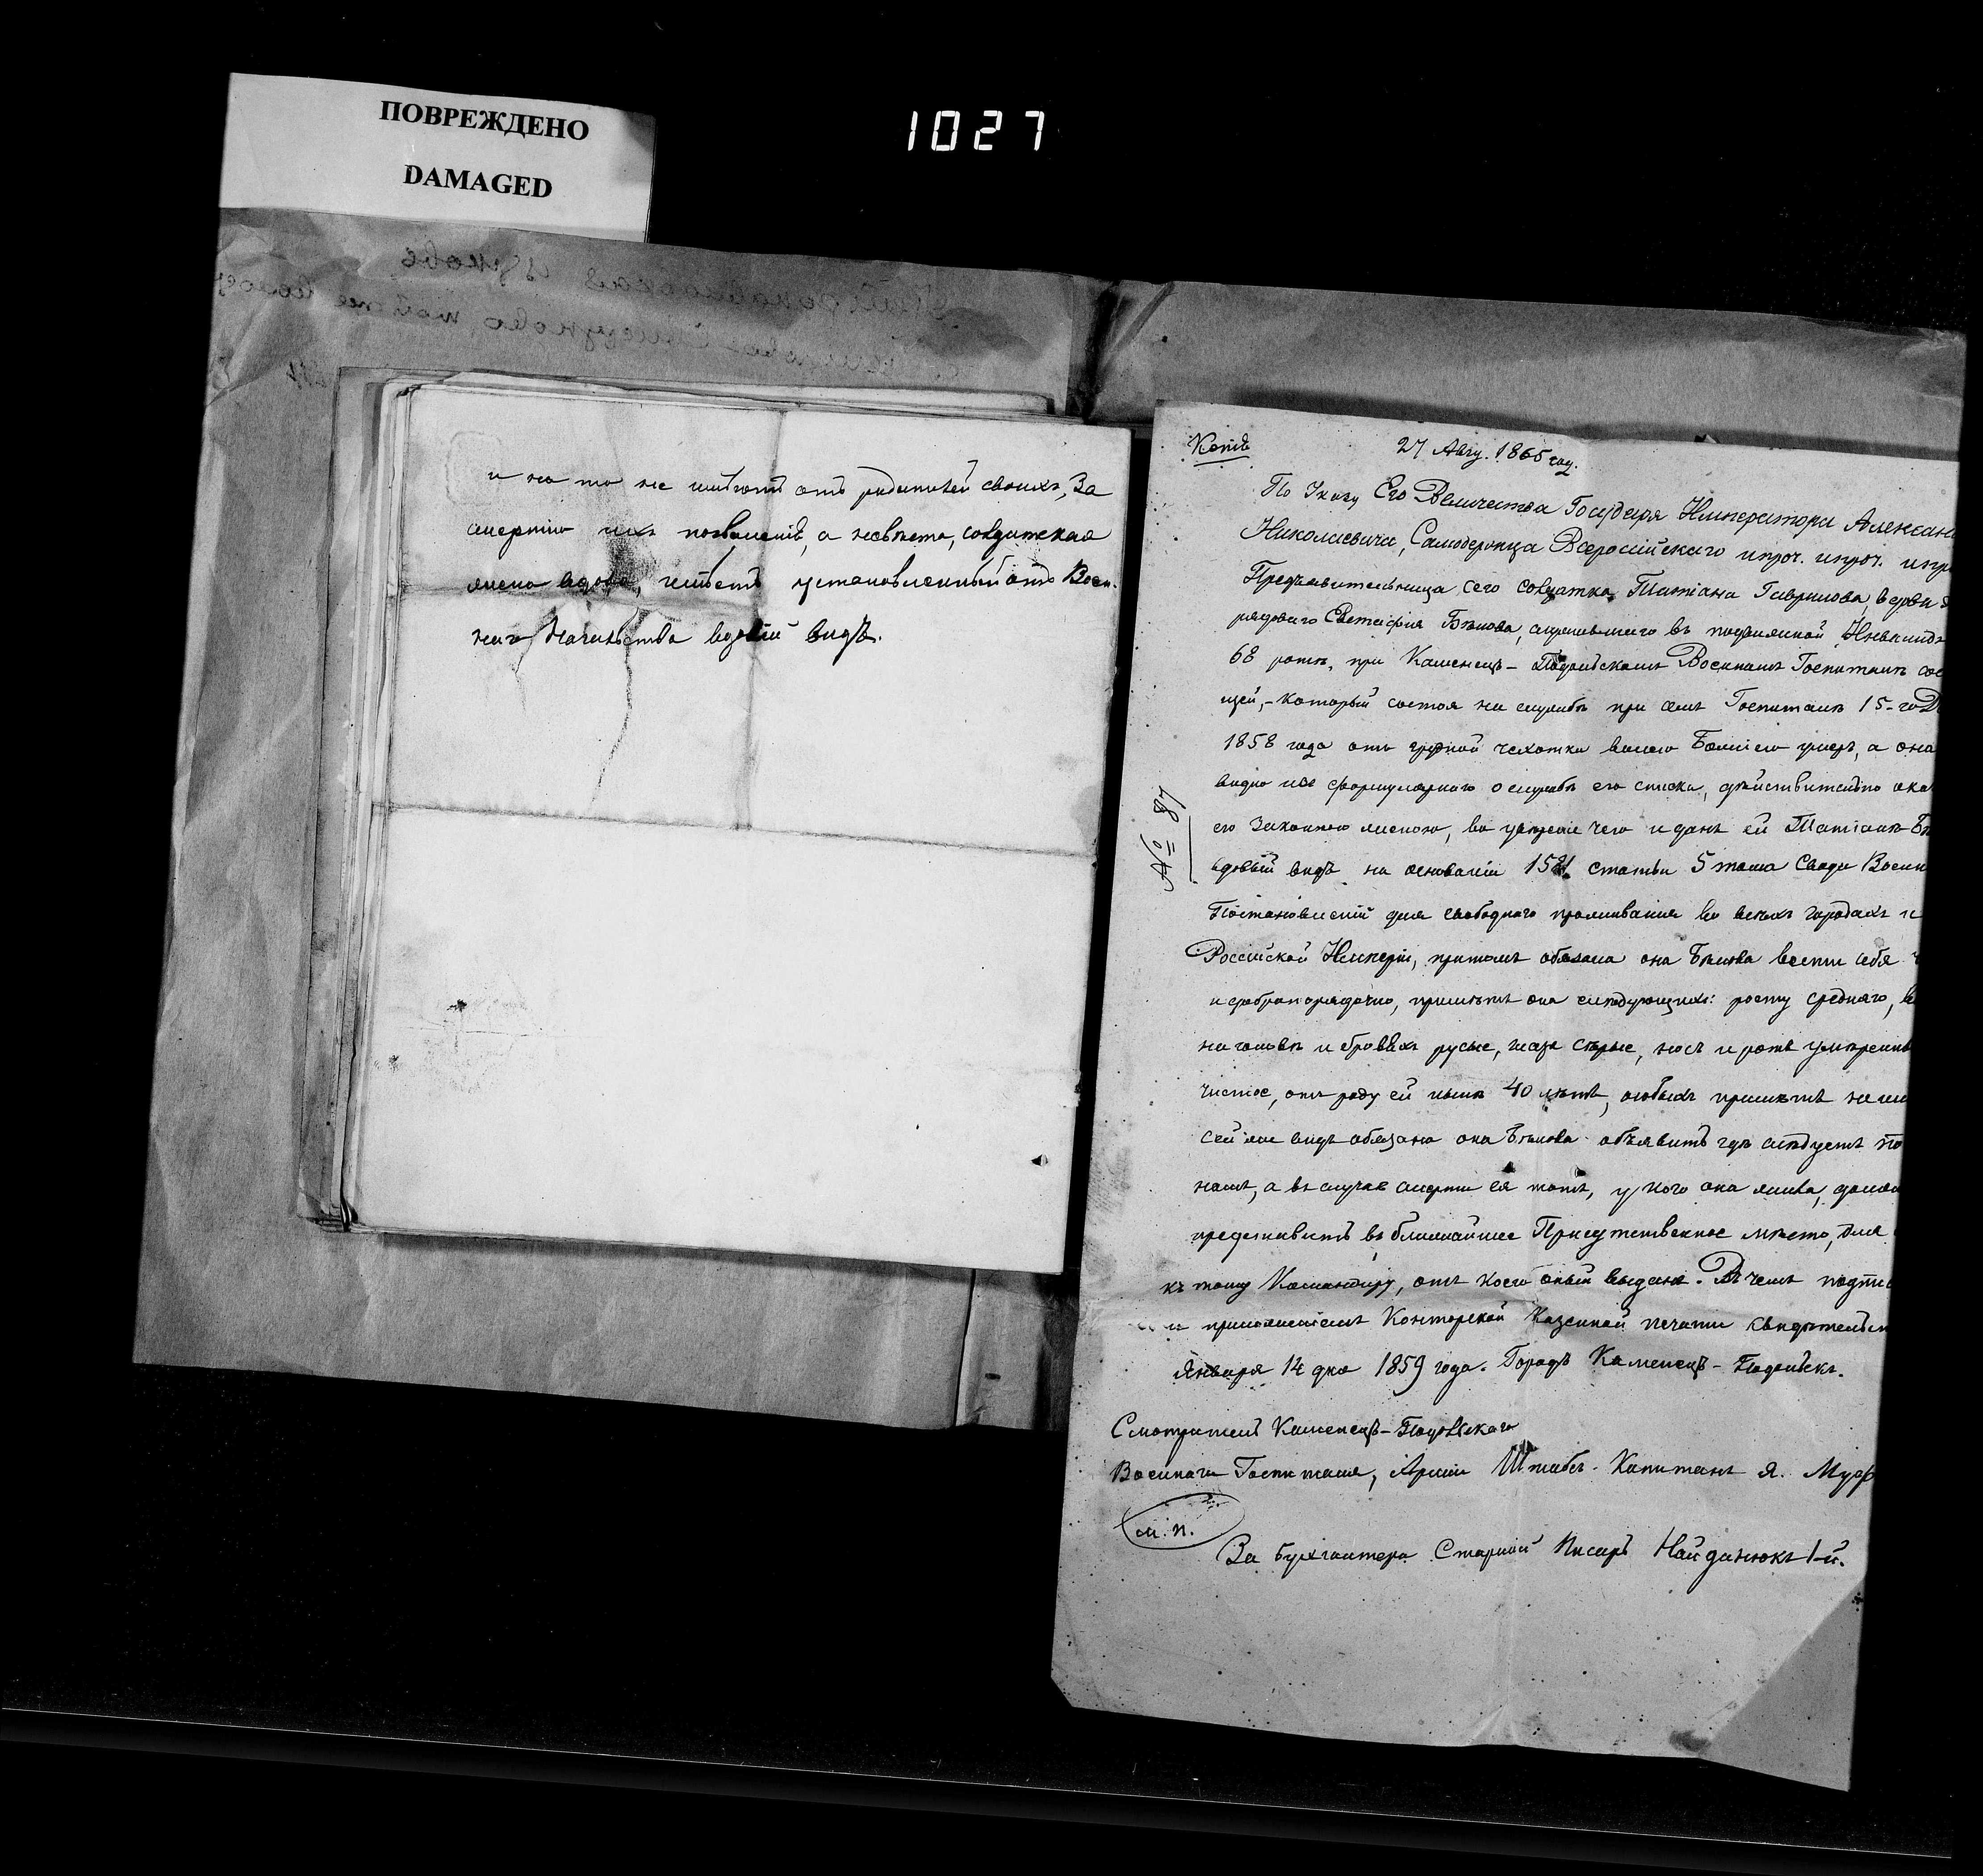 ПОВРЕЖДЕНО
DAMAGED
1027
и на то не имѣютъ отъ родителей своихъ, за
смертію ихъ позволенія, а невѣста, солдатская
жена вдова, имѣетъ установленный отъ Воен-
наго Начальства вдовій видъ.
Копія
27 Авгу. 1865 год.
По Указу Его Величества Государя Императора Алексан
Николаевича, Самодержца Всеросійскаго ипроч. ипроч. ипро
Предъявительница сего солдатка Татіана Гаврилова, вдова
рядоваго Евстафія Бѣлова, служившего въ подвижной Инвалидн
68 ротѣ, при Каменецъ-Подольскомъ Военномъ Госпиталѣ сос
щей,-который состоя на службѣ при семъ Госпиталѣ 15-го Д
1858 года отъ грудной чахотки волею Божіею умеръ, а она
видно изъ формулярнаго о службѣ его списка, дѣйствительно ока
его законною женою, во увѣреніе чего и данъ ей Татіанѣ Бѣ
вдовій видъ на основаніи 1581 статьи 5 тома Свода Воен
Постановленій для свободнаго проживанія во всѣхъ городахъ и
Россійской Имперіи, притомъ обязана она Бѣлова вести себя ч
и добропорядочно, примѣтъ она слѣдующихъ: росту средняго, в
на головѣ и бровяхъ русые, глаза сѣрые, носъ и ротъ умѣренны
чистое, отъ роду ей нынѣ 40 лѣтъ, особыхъ примѣтъ не им
сей же видъ обязана она Бѣлова объявить гдѣ слѣдуетъ по
намъ, а въ случаѣ смерти ея тотъ, у кого она жила, долже
представить въ ближайшее Присутственное мѣсто, для
къ тому Командиру, отъ коего оный выданъ. Въ чемъ подпи
и приложеніемъ Конторской Казенной печати свидѣтельс
Января 14 дня 1859 года. Городъ Каменецъ-Подольскъ.
№ 87
Смотритель Каменецъ-Подольскаго
Военнаго Госпиталя, Арміи Штабсъ-Капитанъ Я. Мур
м.п.
За Бухгалтера Старшій Писарь Найданюкъ 1-й.